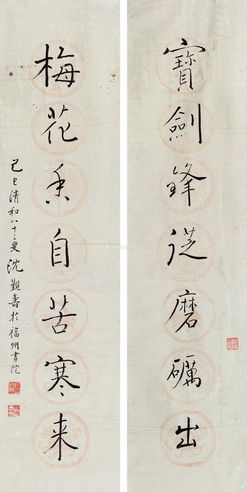 寶劍鋒從磨礪出
梅花香自苦寒来
己巳清和八十叟沈覲壽於福州書院